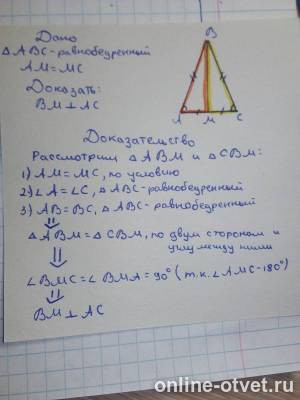 Дано
△ABC-равнобедренный
AM=MC
Доказать:
BM⊥AC
B
A M C
Доказательство
Рассмотрим △ABM и △CBM:
1) AM=MC, по условию
2) ∠A=∠C, △ABC-равнобедренный
3) AB=BC, △ABC-равнобедренный
⇓
△ABM=△CBM, по двум сторонам и
углу между ними
⇓
∠BMC=∠BMA=90° (т.к. ∠AMC-180°)
⇓
BM⊥AC
online-otvet.ru